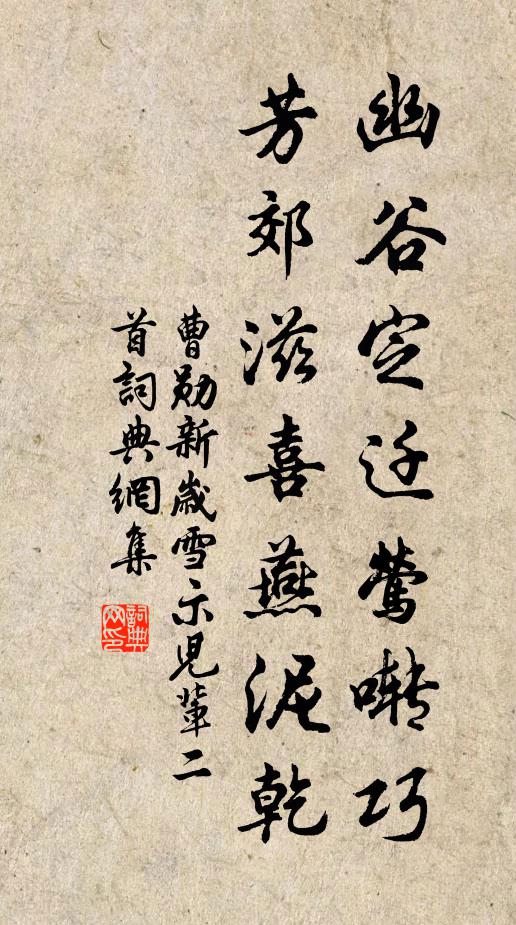 幽谷定迁莺啭巧
芳郊滋喜燕泥乾
曹勋新岁雪示儿辈二
首词典網集
詞典
网印